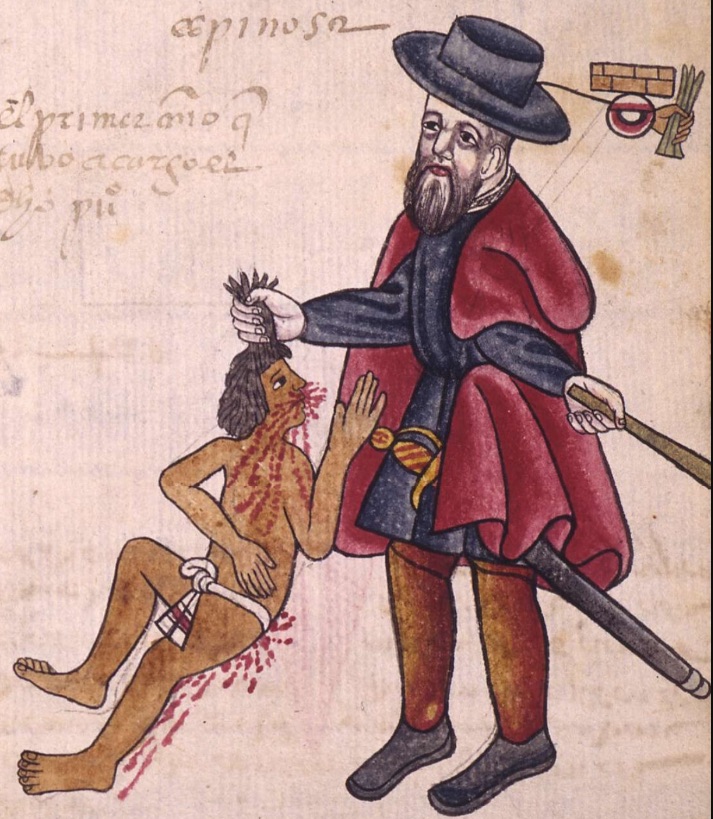 espinosa
El primer año q̄
tubo a cargo el
dho pu°